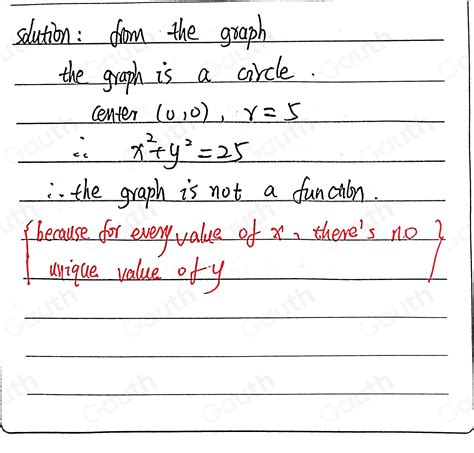 solution: from the graph
the graph is a circle.
center (0,0), r=5
∴ x²+y²=25
∴ the graph is not a function.
{because for every value of x, there's no
unique value of y}
Gauth